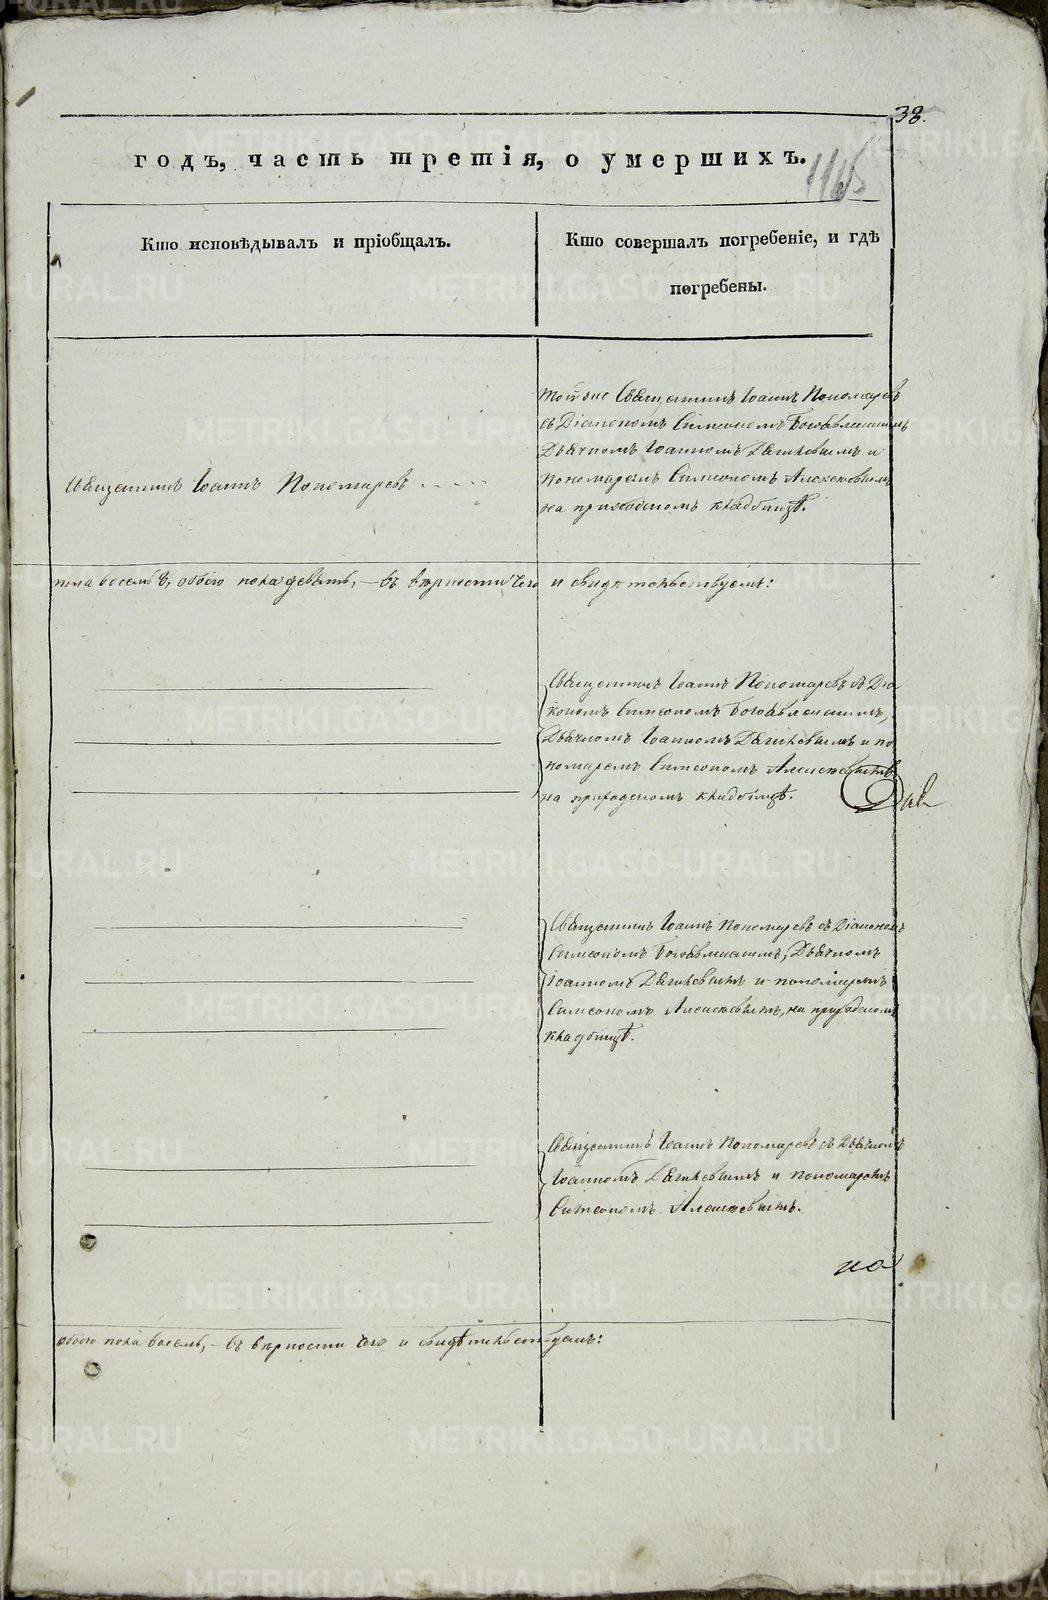 38.
годъ, часть третія, о умершихъ.
1165
Кто исповѣдывалъ и пріобщалъ.
Кто совершалъ погребеніе, и гдѣ
погребены.
Священникъ Іоаннъ Пономаревъ
Тойже Священникъ Іоаннъ Пономаревъ
съ Діакономъ Симеономъ Богоявленскимъ
Дьячкомъ Іоанномъ Дягилевымъ и
Пономаремъ Симеономъ Алексѣевымъ,
на приходскомъ кладбищѣ.
пола восемь, обоего пола девять, — въ вѣрности чего и свидѣтельствуемъ:
Священникъ Іоаннъ Пономаревъ съ Діа
кономъ Симеономъ Богоявленскимъ,
Дьячкомъ Іоанномъ Дягилевымъ и по
номаремъ Симеономъ Алексѣевымъ
на приходскомъ кладбищѣ.
Священникъ Іоаннъ Пономаревъ съ Діакономъ
Симеономъ Богоявленскимъ, Дьячкомъ
Іоанномъ Дягилевымъ и пономаремъ
Симеономъ Алексѣевымъ, на приходскомъ
кладбищѣ.
Священникъ Іоаннъ Пономаревъ съ Дьячкомъ
Іоанномъ Дягилевымъ и Пономаремъ
Симеономъ Алексѣевымъ.
на
обоего пола восемь, — въ вѣрности чего и свидѣтельствуемъ:
METRIKI.GASO-URAL.RU